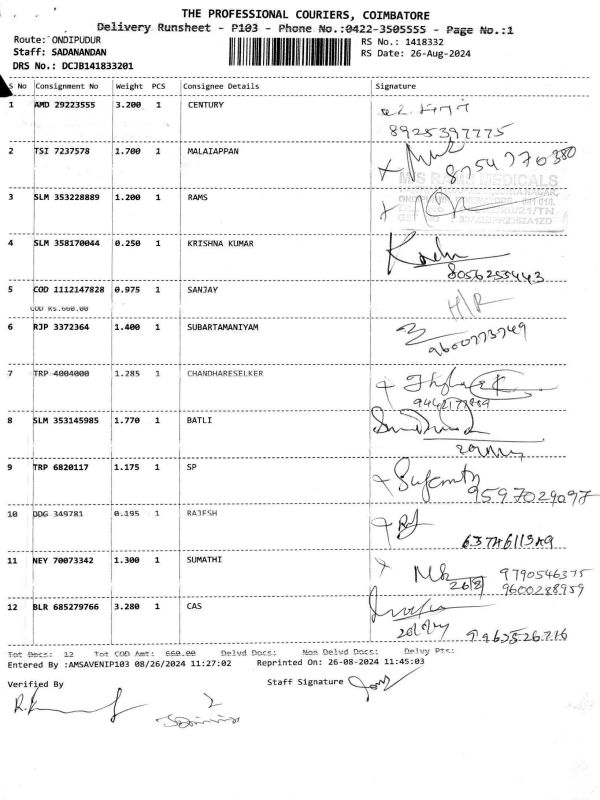 THE PROFESSIONAL COURIERS, COIMBATORE
Delivery Runsheet - P103 - Phone No.:0422-3505555 - Page No.:1
Route: ONDIPUDUR RS No.: 1418332
Staff: SADANANDAN RS Date: 26-Aug-2024
DRS No.: DCJB141833201
S No Consignment No Weight PCS Consignee Details Signature
1 AMD 29223555 3.200 1 CENTURY
8925397775
2 TSI 7237578 1.700 1 MALAIAPPAN
8754770380
M/S RAMS MEDICALS
3 SLM 353228889 1.200 1 RAMS
4 SLM 358170044 0.250 1 KRISHNA KUMAR
8056255443
5 COD 1112147828 0.975 1 SANJAY H/R
COD Rs.660.00
6 RJP 3372364 1.400 1 SUBARTAMANIYAM
9600773749
7 TRP 4004000 1.285 1 CHANDHARESELKER
8 SLM 353145985 1.770 1 BATLI
9 TRP 6820117 1.175 1 SP
9597029097
10 DDG 349781 0.195 1 RAJESH
11 NEY 70073342 1.300 1 SUMATHI
26/8 9790546375
9600288959
12 BLR 685279766 3.280 1 CAS
Tot Docs: 12 Tot COD Amt: 660.00 Delvd Docs: Non Delvd Docs: Delvy Pts:
Entered By :AMSAVENIP103 08/26/2024 11:27:02 Reprinted On: 26-08-2024 11:45:03
Verified By Staff Signature